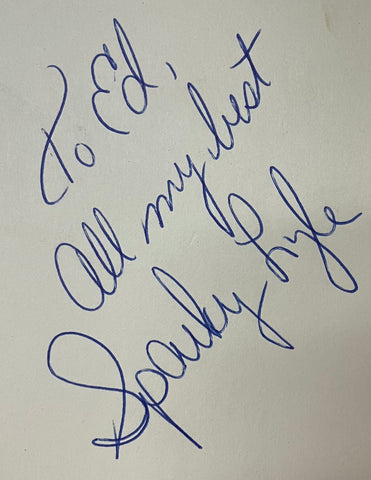 To Ed,
All my best
Sparky Lyle